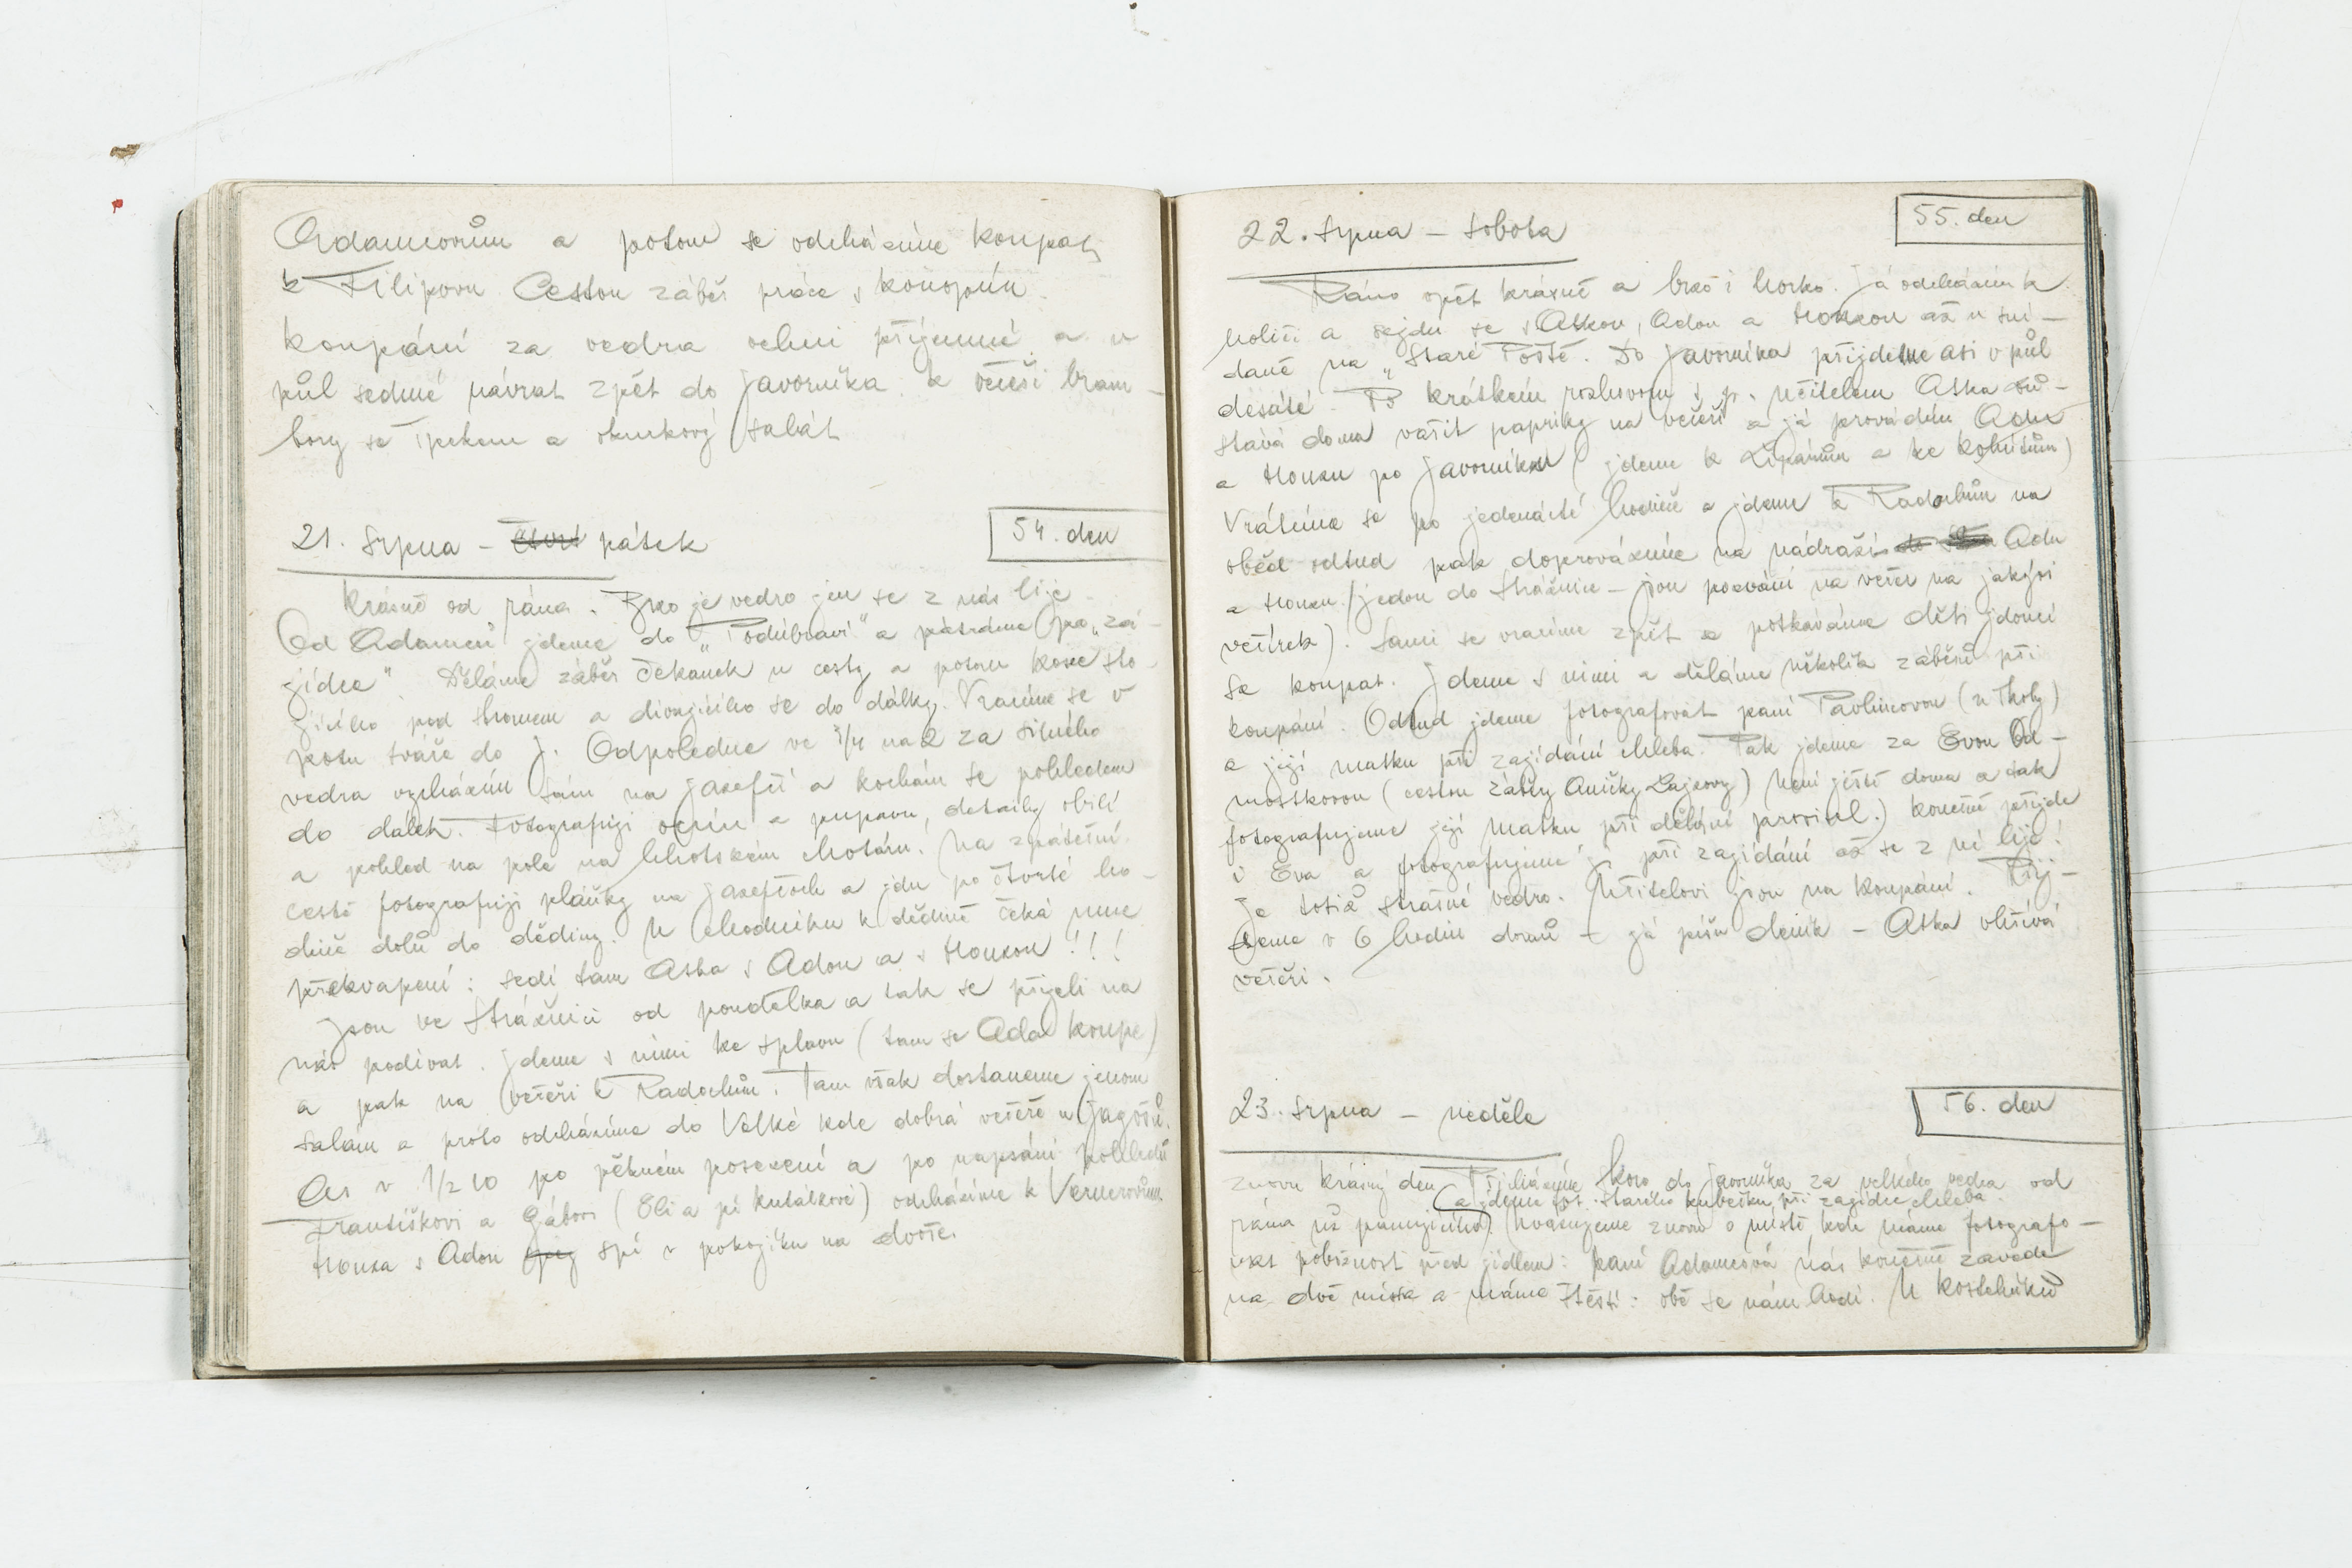 Adamcovům a potom se odcházíme koupat
k Filipovu Cestou záběr práce s konopím.
koupání za vedra velmi příjemné a v
půl sedmé návrat zpět do Javorníka. k večeři bram-
bory se špekem a okurkový salát
21. srpna - čtvrt pátek
54. den
Krásně od rána. Brzo je vedro jen se z nás lije.
Od Adamců jdeme do „Podúbraví" a pátráme po „za-
jídce". Děláme záběr čekanek u cesty a potom koze sto-
jícího pod stromem a dívajícího se do dálky. Vracíme se v
potu tváře do J. Odpoledne ve 3/4 na 2 za silného
vedra vycházím sám na Jasefčí a kochám se pohledem
do dálek. Fotografuji ocún a pupavu, detaily obilí
a pohled na pole na lhotském chotáru. Na zpáteční
cestě fotografuji pláňky na Jasefčoch a jdu po čtvrté ho-
dině dolů do dědiny. U chodníku k dědině čeká mne
překvapení: sedí tam Aška s Adou a s Honzou!!!
Jsou ve Strážnici od pondělka a tak se přijeli na
nás podívat. Jdeme s nimi ke splavu (tam se Ada koupe)
a pak na večeři k Radochům. Tam však dostaneme jenom
salám a proto odcházíme do Velké kde dobrá večeře u Jagošů.
As v 1/2 10 po pěkném posezení a po napsání pohledů
Františkovi a Gábovi (Eli a pí Kutálkové) odcházíme k Vernerovům.
Honza s Adou spí v pokojíku na dvoře.
22. srpna - sobota
55. den
Ráno opět krásně a brzo i horko. Já odcházím k
holiči a sejdu se s Aškou, Adou a Honzou až u sní-
daně na „Staré Poště. Do Javorníka přijdeme asi v půl
desáté. Po krátkém rozhovoru s p. učitelem Aška zů-
stává doma vařit papriky na večeři a já provádím Adu
a Honzu po Javorníku (jdeme k Lipárům a ke Kohútům)
Vrátíme se po jedenácté hodině a jdeme k Radochům na
oběd odtud pak doprovázíme na nádraží Adu
a Honzu. (jedou do Strážnice - jsou pozváni na večer na jakýsi
večírek). Sami se vracíme zpět a potkáváme děti jdoucí
se koupat. Jdeme s nimi a děláme několik záběrů při
koupání. Odtud jdeme fotografovat paní Pavlincovou (u školy)
a její matku při zajídání chleba. Pak jdeme za Evou Od-
mostkovou (cestou záběry Aničky Lajcovy) Není ještě doma a tak
fotografujeme její matku při dělání pärovisel.) konečně přijde
i Eva a fotografujeme ji při zajídání až se z ní lije!
Je totiž strašné vedro. Učitelovi jsou na koupání. Přij-
deme v 6 hodin domů - já píšu deník - Aška ohřívá
večeři.
23. srpna - neděle
56. den
znovu krásný den Přicházíme skoro do Javorníka za velkého vedra od
(a jdeme fot. starého Kubečku při zajídce chleba.
rána už panujícího) Uvažujeme znovu o místě, kde máme fotografo-
vat pobožnost před jídlem: paní Adamcová nás konečně zavede
na dvě místa a máme štěstí: obě se nám hodí. U Kostelníků